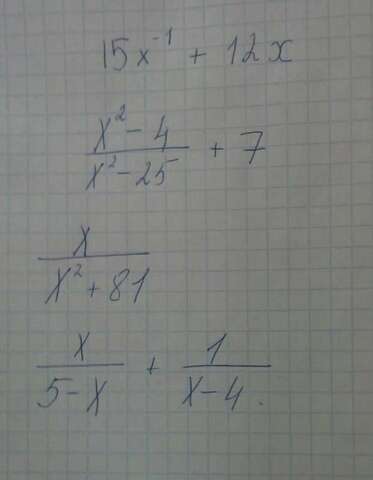 15x⁻¹ + 12x
x² - 4
x² - 25
+ 7
x
x² + 81
x
5 - x
+
1
x - 4.